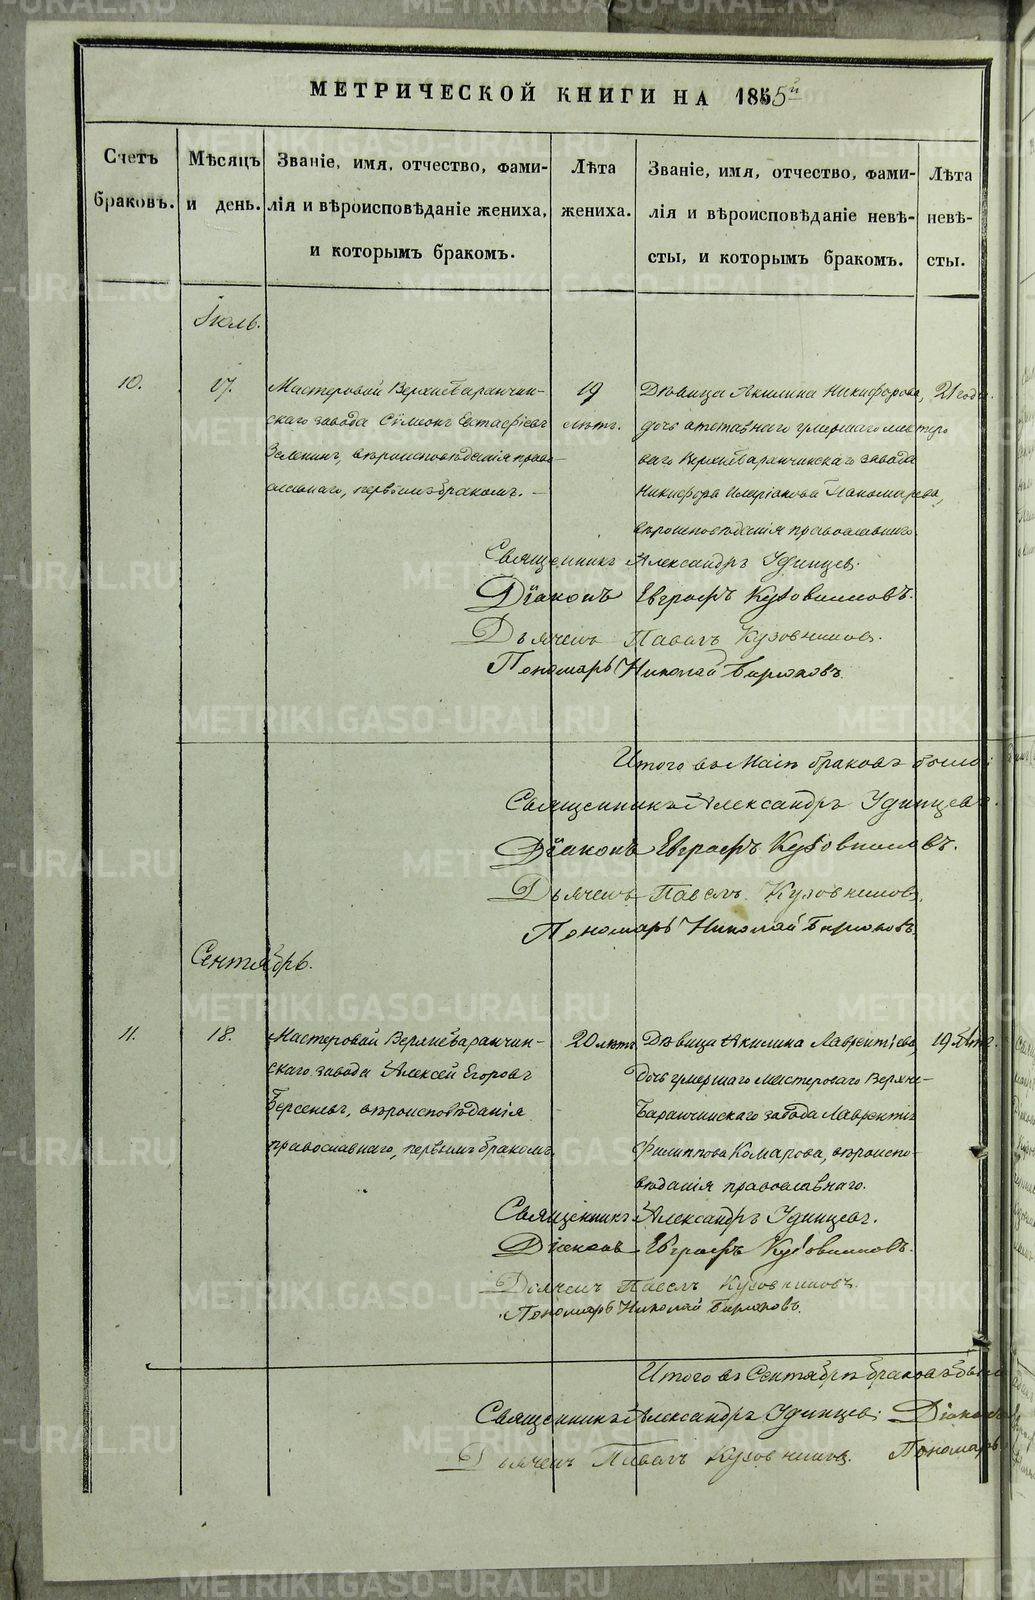 МЕТРИЧЕСКОЙ КНИГИ НА 1855й
Счетъ браковъ.
Мѣсяцъ и день.
Званіе, имя, отчество, фами-
лія и вѣроисповѣданіе жениха,
и которымъ бракомъ.
Лѣта
жениха.
Званіе, имя, отчество, фами-
лія и вѣроисповѣданіе невѣ-
сты, и которымъ бракомъ.
Лѣта
невѣ-
сты.
Іюль.
10.
17.
Мастеровой Верхнебаранчин-
скаго завода Сѵмеонъ Евстафіевъ
Зеленинъ, вѣроисповѣданія право-
славнаго, первымъ бракомъ.
19
лѣтъ.
Дѣвица Акилина Никифорова,
дочь отставнаго умершаго мастеро
ваго Верхнебаранчинскаго завода
Никифора Пономарева,
вѣроисповѣданія православнаго.
21 года.
Священникъ Александръ Удинцевъ.
Діаконъ Евграфъ Кузовниковъ.
Дьячекъ Павелъ Кузовниковъ.
Пономарь Николай Бирюковъ.
Итого въ браковъ было:
Священникъ Александръ Удинцевъ.
Діаконъ Евграфъ Кузовниковъ.
Дьячекъ Павелъ Кузовниковъ.
Пономарь Николай Бирюковъ.
Сентябрь.
11.
18.
Мастеровой Верхнебаранчин-
скаго завода Алексей Егоровъ
Берсеневъ, вѣроисповѣданія
православнаго, первымъ бракомъ.
20 лѣтъ
Дѣвица Акилина Лаврентіева,
дочь умершаго мастероваго Верхне-
Баранчинскаго завода Лаврентія
Филиппова Комарова, вѣроиспо-
вѣданія православнаго.
19 лѣтъ.
Священникъ Александръ Удинцевъ.
Діаконъ Евграфъ Кузовниковъ.
Дьячекъ Павелъ Кузовниковъ.
Пономарь Николай Бирюковъ.
Итого въ Сентябрѣ браковъ было
Священникъ Александръ Удинцевъ. Діаконъ
Дьячекъ Павелъ Кузовниковъ. Пономарь
METRIKI.GASO-URAL.RU